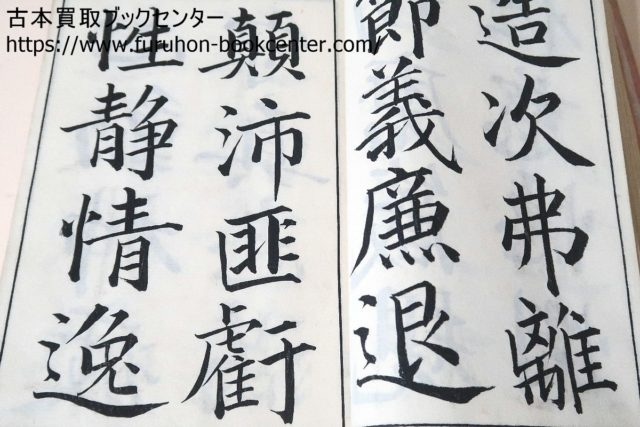 古本買取ブックセンター
https://www.furuhon-bookcenter.com/
造次弗離
節義廉退
顛沛匪虧
性静情逸